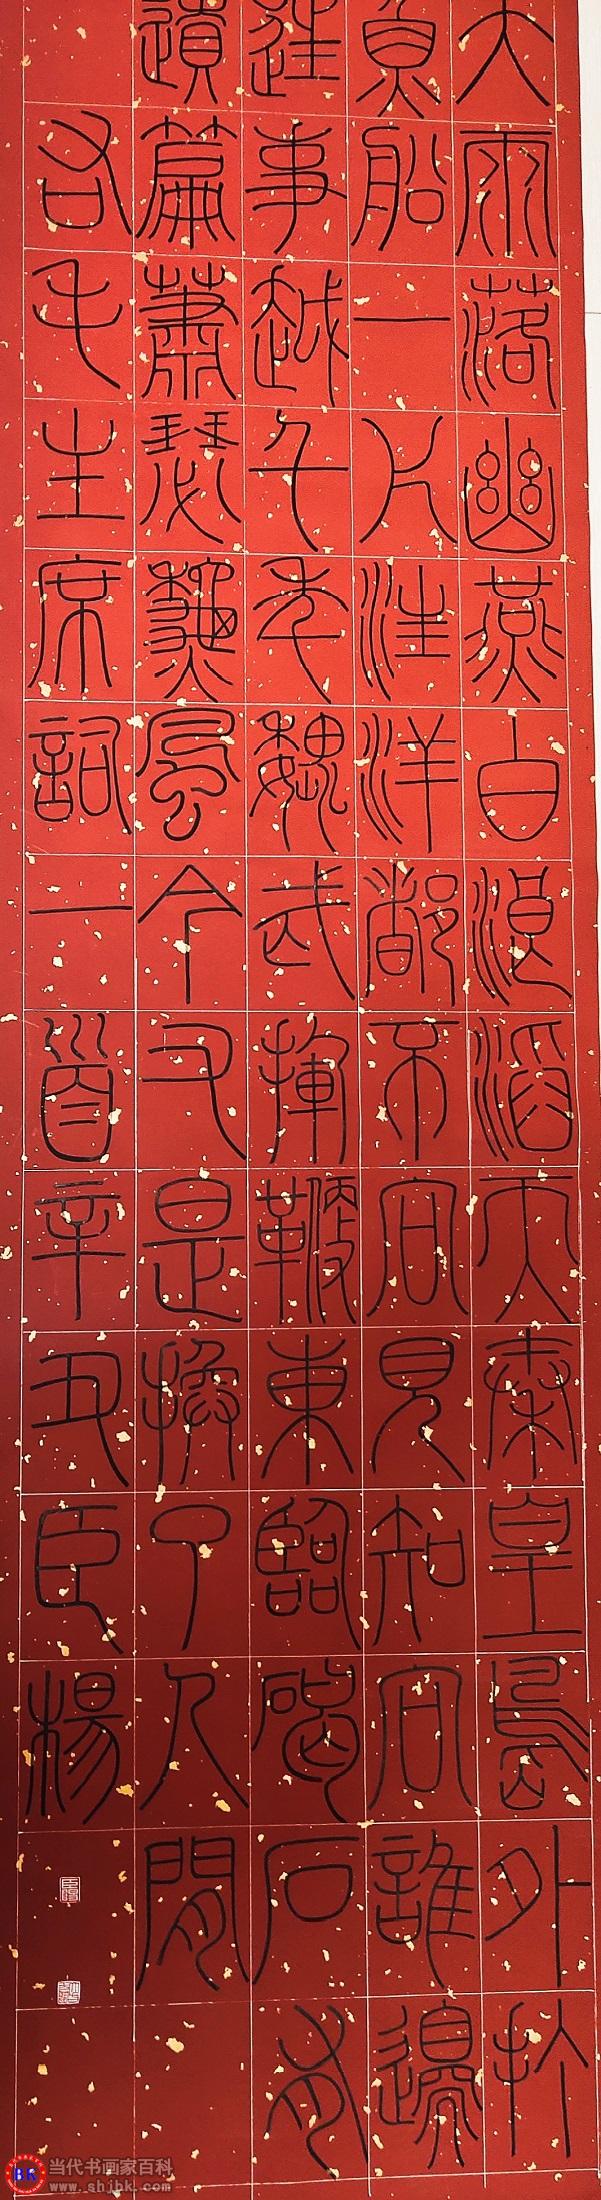 大雨落幽燕白浪滔天秦皇島外打
魚船一片汪洋都不向見知向誰邊
往事越千年魏武揮鞭東臨碣石有
遺篇蕭瑟秋風今又是換了人間
右毛主席詞一首辛丑臣楊
当代书画家百科
www.shjbk.com
BK